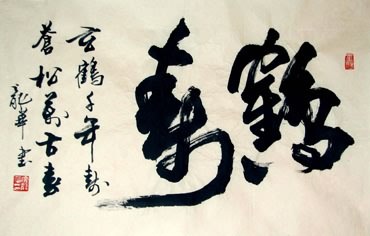 鶴壽
玄鶴千年壽
蒼松萬古春
龍華書